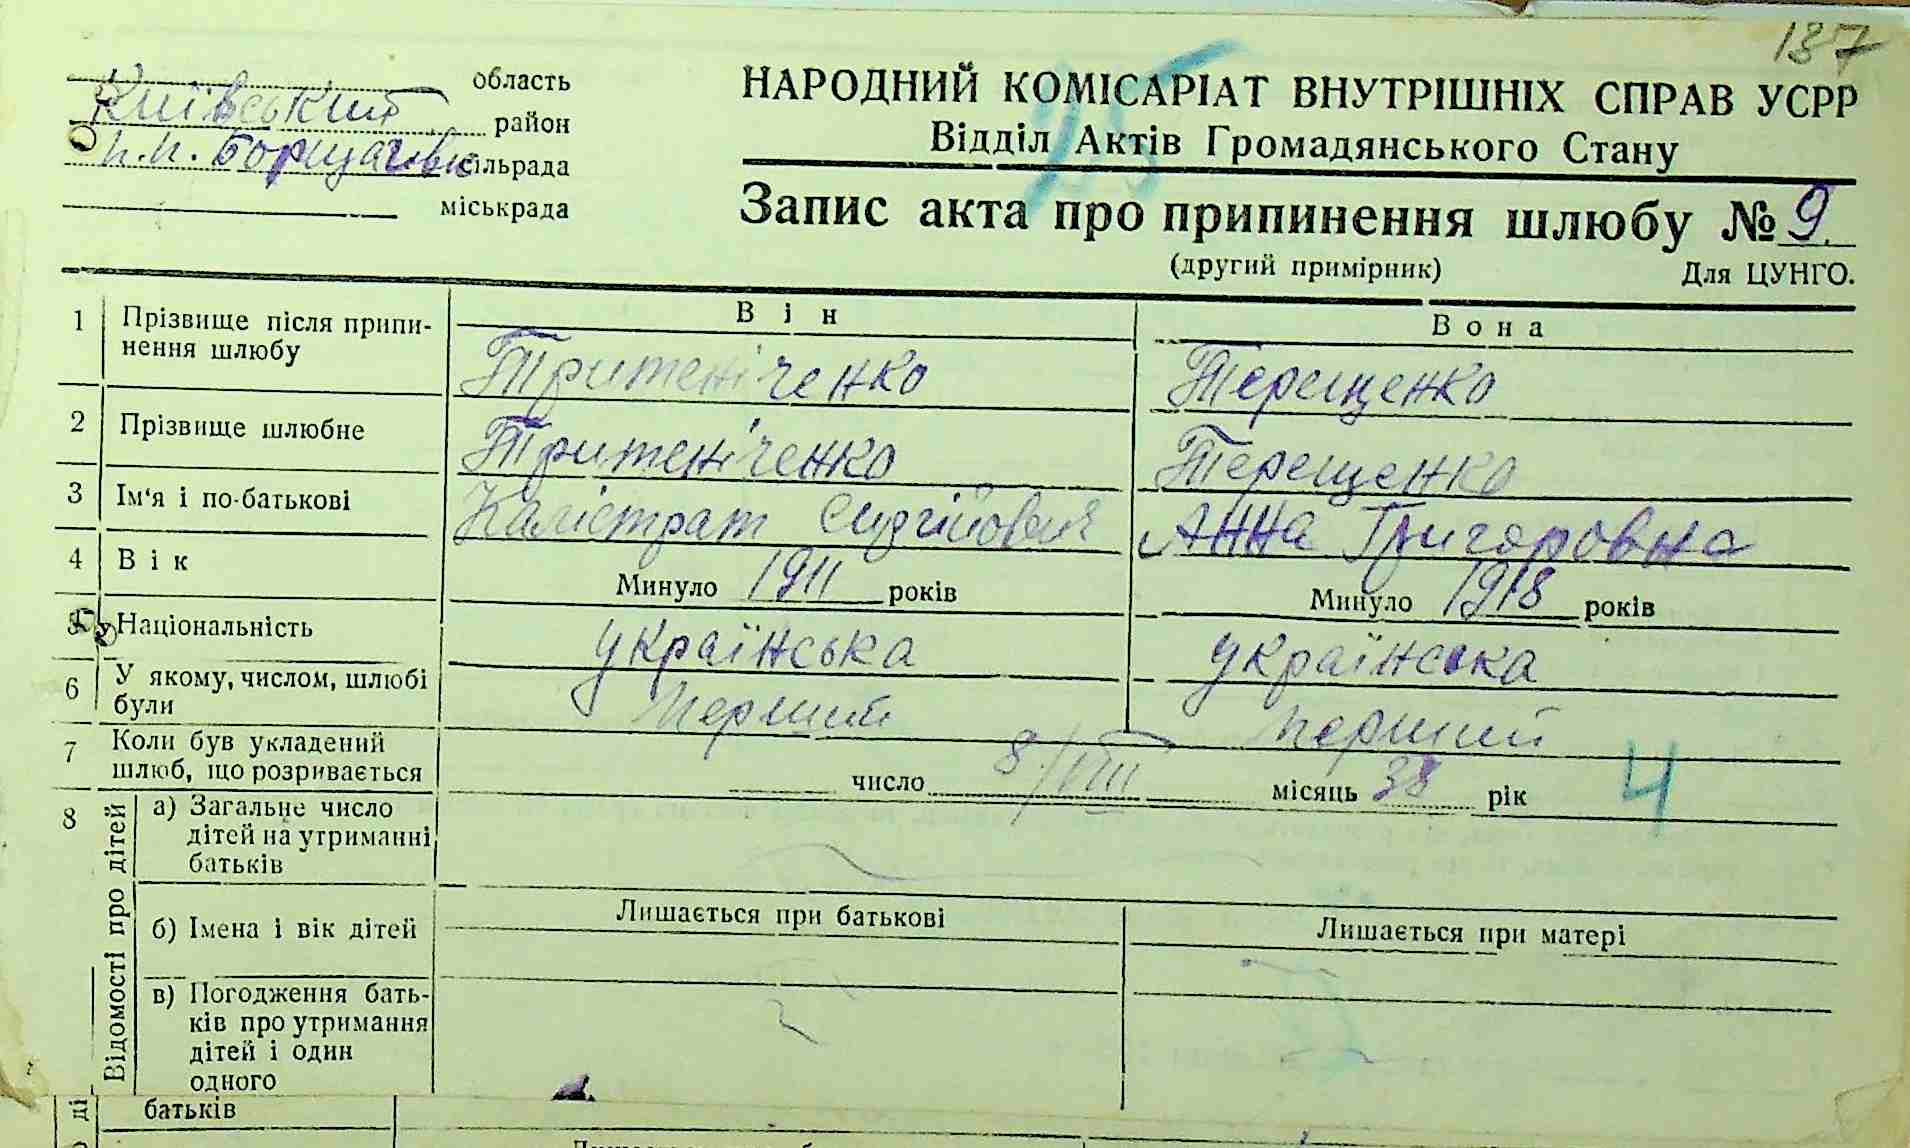 187
область
Київський район
П.П. Борщагівк сільрада
міськрада
НАРОДНИЙ КОМІСАРІАТ ВНУТРІШНІХ СПРАВ УСРР
Відділ Актів Громадянського Стану
25
Запис акта про припинення шлюбу № 9.
(другий примірник) Для ЦУНГО.
Він Вона
1 Прізвище після припи-
нення шлюбу
Притеніченко Терещенко
2 Прізвище шлюбне Притеніченко Терещенко
3 Ім'я і по-батькові Калістрат Анна Григоровна
4 Вік Минуло 1911 років Минуло 1918 років
5 Національність українська українська
6 У якому, числом, шлюбі
були
перший перший
7 Коли був укладений
шлюб, що розривається
число 8/VIII місяць 38 рік 4
8 Відомості про дітей
а) Загальне число
дітей на утриманні
батьків
б) Імена і вік дітей Лишається при батькові Лишається при матері
в) Погодження бать-
ків про утримання
дітей і один
одного
батьків